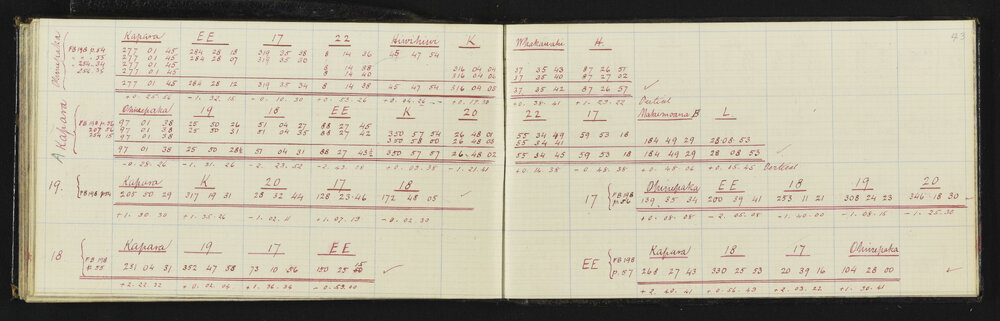 43
Kapara EE 17 22 Hiwihiwi K Whakauaki H
Ohinepaka
FB 198 p.54 277 01 45 284 28 18 319 35 38 8 14 36 45 47 54 37 35 43 87 26 51
" " 55 277 01 45 284 28 07 319 35 30 37 35 40 87 27 02
" 254.34 277 01 45 8 14 38 316 04 04
254.35 277 01 45 8 14 40 316 04 06
277 01 45 284 28 12 319 35 34 8 14 38 45 47 54 316 04 05 37 35 42 87 26 57
+0.25.56 -1.32.15 +0.10.30 +0.53.26 +0.04.26 +0.17.30 +0.38.41 +1.23.22 Partial
Ohinepaka 19 18 EE K 20 22 17 Makimoana B L
Kapara
FB 198 p.56 97 01 38 25 50 26 51 04 27 88 27 45 26 48 01 55 34 49 59 53 18 184 49 29 28 08 53
97 01 38 25 50 31 51 04 35 88 27 42 350 57 54 26 48 03 55 34 41
97 01 38 350 58 00
97 01 38 25 50 28½ 51 04 31 88 27 43½ 350 57 57 26 48 02 55 34 45 59 53 18 184 49 29 28 08 53
-0.28.26 -1.31.26 -2.23.52 -2.43.18 +0.03.38 -1.21.41 +0.14.38 -0.48.38 +0.48.06 +0.15.45 Partial
19. FB 198 p.54 Kapara K 20 17 18
205 50 29 317 19 31 28 32 44 128 23 46 172 48 05
+1.30.30 +1.35.26 -1.02.11 +1.07.19 -0.02.30
17 FB 198 p.56 Ohinepaka EE 18 19 20
139 35 34 200 39 41 253 11 21 308 24 23 346 18 30
+0.08.08 -2.05.08 -1.40.00 -1.08.15 -1.25.30
18 FB 198 p.55 Kapara 19 17 EE
231 04 31 352 47 58 73 10 56 150 25 15
+2.22.32 +0.02.04 +1.36.36 -0.53.00
EE FB 198 p.57 Kapara 18 17 Ohinepaka
268 27 43 330 25 53 20 39 16 104 28 00
+2.40.41 +0.56.43 +2.03.22 +1.30.41